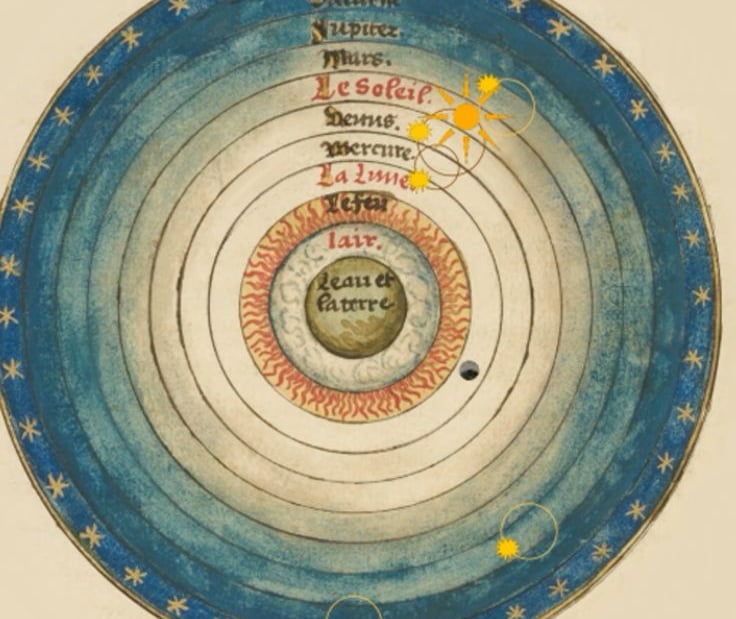 Jupiter.
Mars.
Le Soleil.
Venus.
Mercure.
La Lune
Le feu
lair.
Leau et
la terre